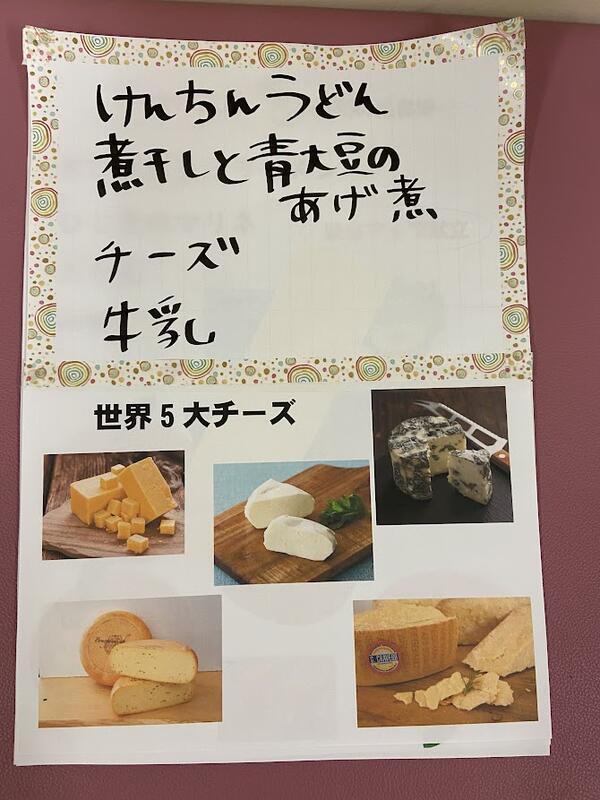 けんちんうどん
煮干しと青大豆の
あげ煮
チーズ
牛乳
世界5大チーズ